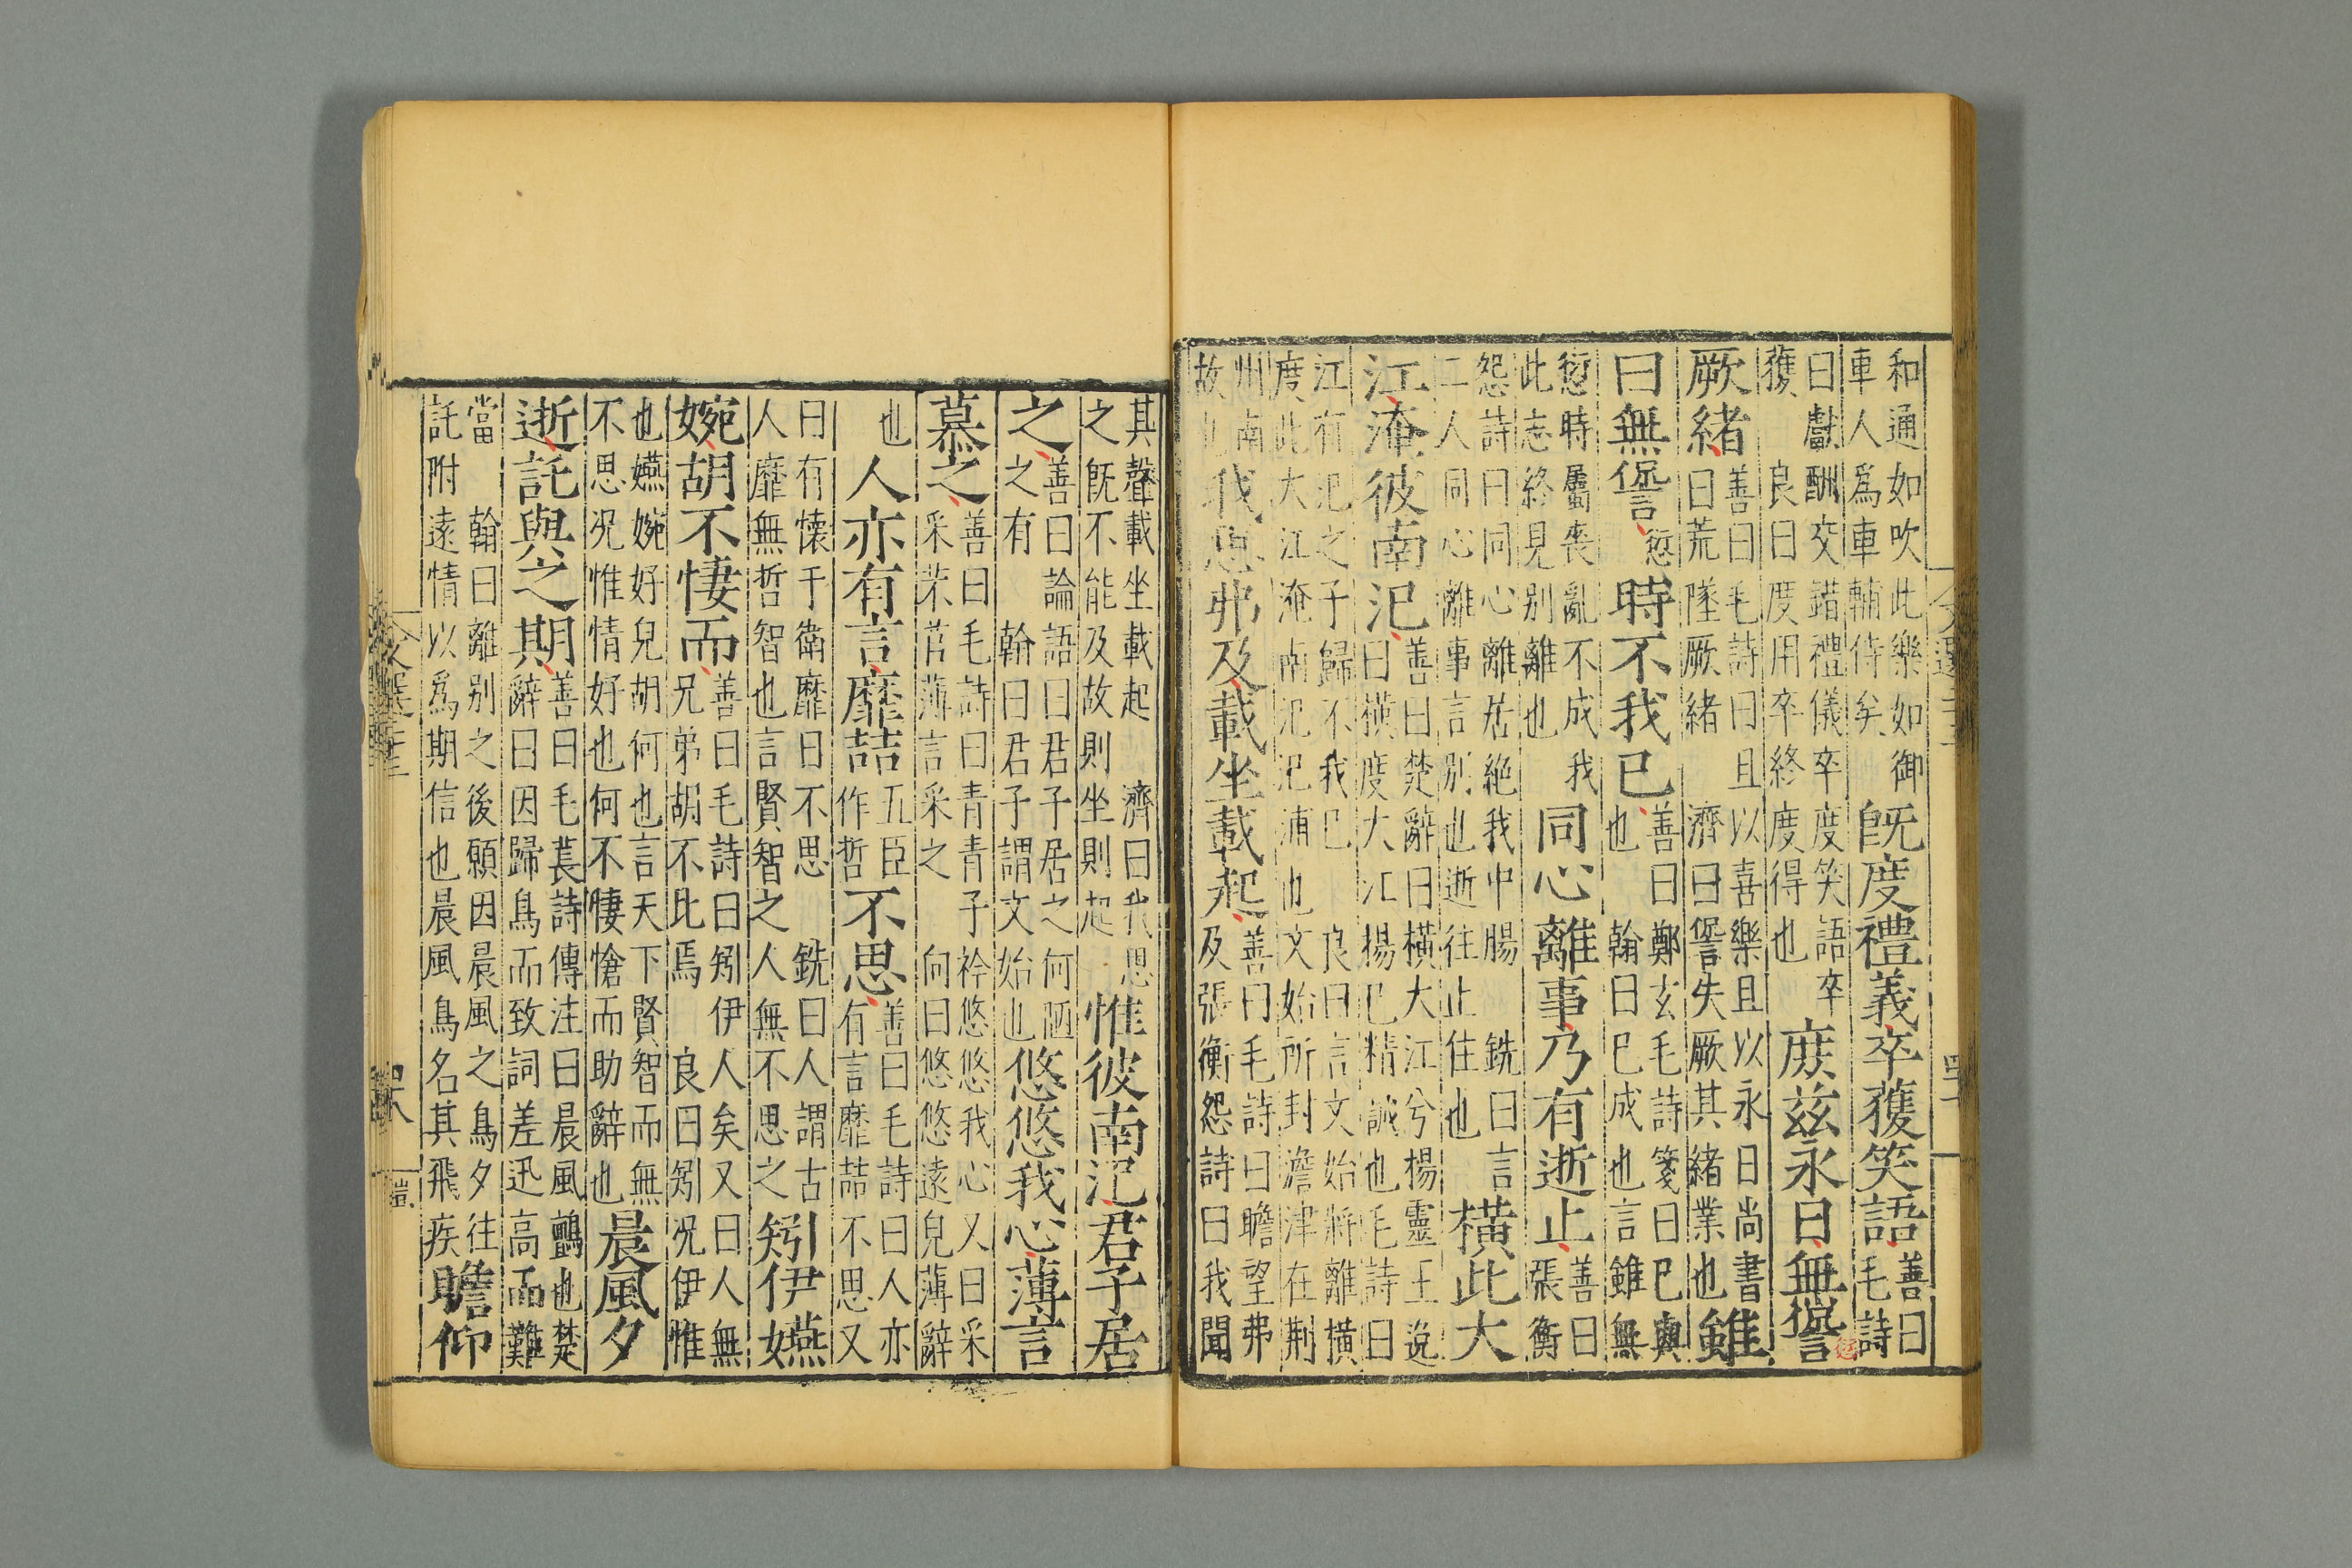 和通如吹此樂如御車人爲車輔侍矣既度禮義卒獲笑語善曰毛詩
曰獻酬交錯禮儀卒度笑語卒獲 良曰度用卒終度得也庻兹永日無諐
厥緒善曰毛詩曰且以喜樂且以永日尚書曰荒墜厥緒 濟曰諐失厥其緒業也雖
曰無諐愆時不我已善曰鄭玄毛詩箋曰巳與也 翰曰巳成也言雖無
愆時屬喪亂不成我此志終見别離也同心離事乃有逝止善曰張衡
怨詩曰同心離居絶我中腸 銑曰言二人同心離事言别也逝往止住也横此大
江淹彼南汜善曰楚辭曰横大江兮揚靈王逸曰横度大江揚已精誠也毛詩曰
江有汜之子歸不我已 良曰言文始將離横度此大江淹南汜汜浦也文始所封澹津在荆
州南故也我思弗及載坐載起善曰毛詩曰瞻望弗及張衡怨詩曰我聞
其聲載坐載起 濟曰我思之既不能及故則坐則起惟彼南汜君子居
之善曰論語曰君子居之何陋之有 翰曰君子謂文始也悠悠我心薄言
慕之善曰毛詩曰青青子衿悠悠我心又曰采采芣苢薄言采之 向曰悠悠遠皃薄辭
也人亦有言靡喆五臣作哲不思善曰毛詩曰人亦有言靡喆不思又
曰有懐于衛靡日不思 銑曰人謂古人靡無哲智也言賢智之人無不思之矧伊嬿
婉胡不悽而善曰毛詩曰矧伊人矣又曰人無兄弟胡不比焉 良曰矧况伊惟
也嬿婉好皃胡何也言天下賢智而無不思况惟情好也何不悽愴而助辭也晨風夕
逝託與之期善曰毛萇詩傳注曰晨風鸇也楚辭曰因歸鳥而致詞差迅高而難
當 翰曰離别之後願因晨風之鳥夕往託附遠情以爲期信也晨風鳥名其飛疾瞻仰